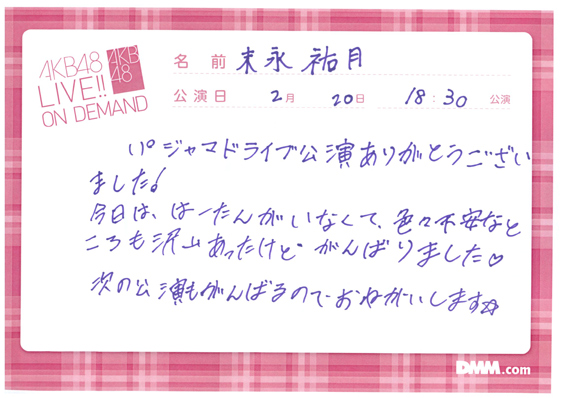 AKB48
LIVE!!
ON DEMAND
AKB
48
名前 末永祐月
公演日 2月 20日 18:30 公演
パジャマドライブ公演ありがとうござい
ました!
今日は、はーたんがいなくて、色々不安なと
ころも沢山あったけど がんばりました♡
次の公演もがんばるので おねがいします☆
DMM.com